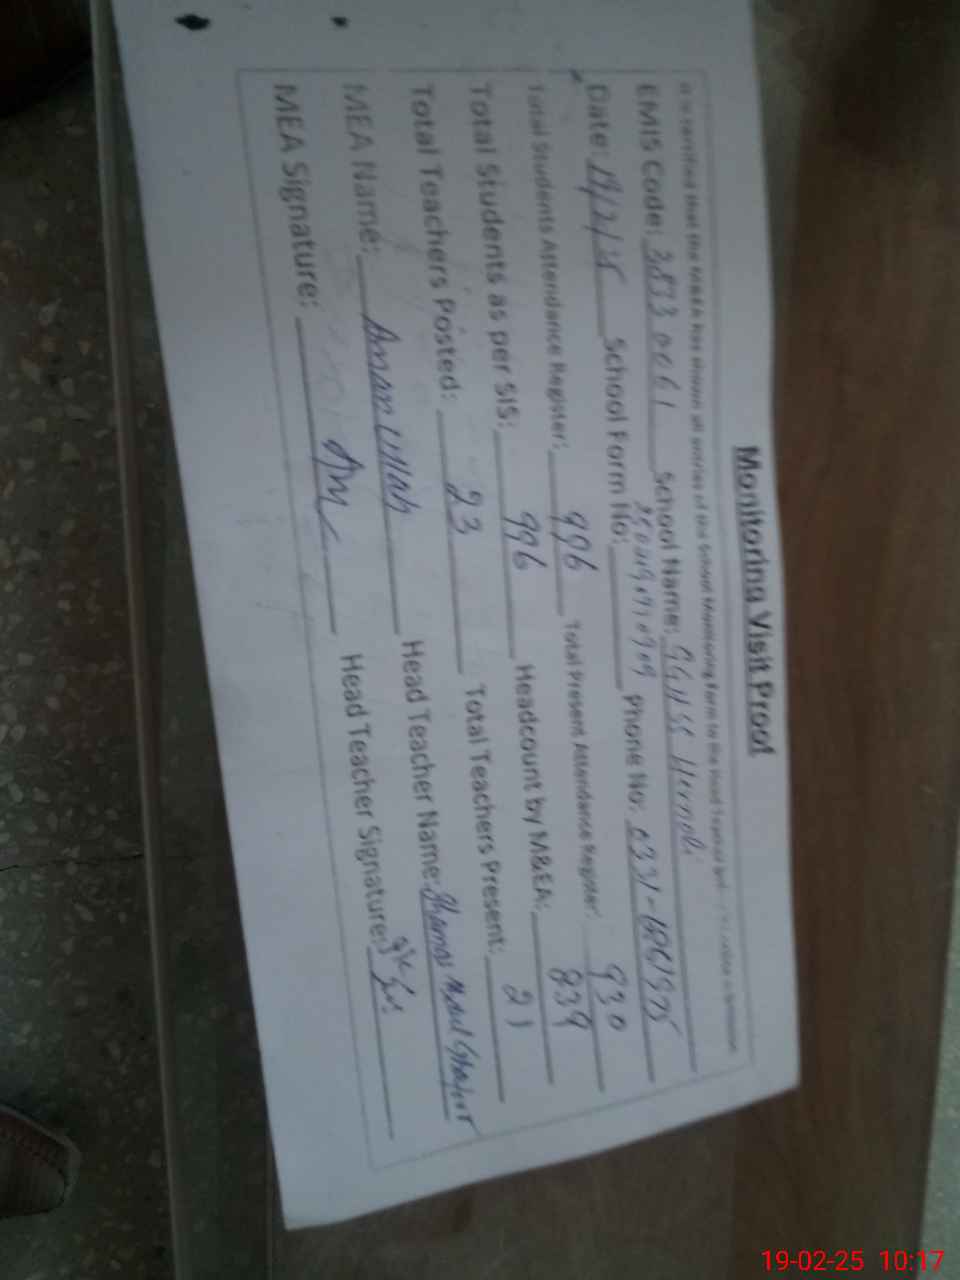 Monitoring Visit Proof
It is certified that the M&EA has shown all entries of the School Monitoring Form to the Head Teacher
EMIS Code: 38330061 School Name: GGHSS Hernoli
Date: 19/2/25 School Form No: Phone No:
Total Students Attendance Register: 996 Total Present Attendance Register: 930
Total Students as per SIS: 996 Headcount by M&EA: 839
Total Teachers Posted: 23 Total Teachers Present: 21
MEA Name: Aman Ullah Head Teacher Name: Shamas
MEA Signature: Head Teacher Signature:
19-02-25 10:17